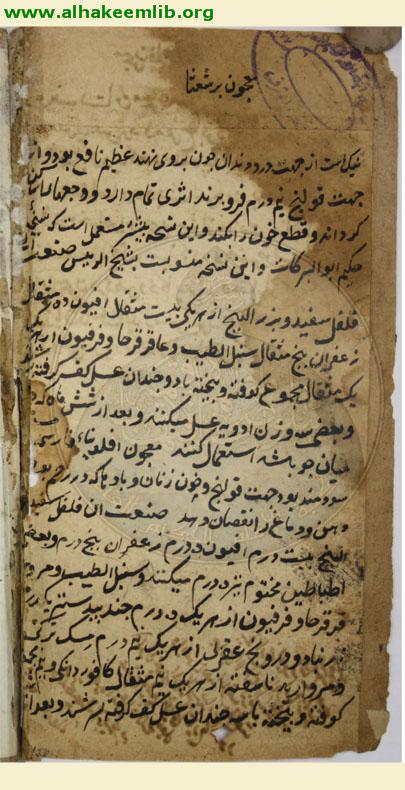 www.alhakeemlib.org
معجون برشعثا
نیک است از جهت درد دندان چون بروی نهند عظیم نافع بود و از
جهت قولنج نیم درم فرو برند اثری تمام دارد و وجعها را ساکن
کرداند و قطع خون را بکند و این نسخه بیشتر مستعمل است که
حکیم ابو البرکات و این نسخه منسوبت بشیخ الرییس صنعت
فلفل سفید و بزر البنج از هر یکی بیست مثقال افیون ده مثقال
زعفران پنج مثقال سنبل الطیب و عاقر قرحا و فرفیون از هر
یک مثقال مجموع کوفته و بیخته با دو چندان عسل کف کرفته
و بعضی سه وزن ادویه عسل میکنند و بعد از شش ماه
میان جو باشد استعمال کنند معجون افلونیاء فارسی
سودمند بود جهت قولنج و خون زنان و بادها که در رحم بود
و ذهن و دماغ را نقصان دهد صنعت آن فلفل سفید
البنج بیست درم افیون ده درم زعفران پنج درم و بعضی
طین مختوم نیز ده درم میکنند و سنبل الطیب
قرقرحا و فرفیون از هر یک دو درم جند بیدستر یک درم
زرنباد و درونج عقربی از هر یک نیم درم مسک ترکی
و مروارید ناسفته از هر یک نیم مثقال کافور دانکی و نیم
کوفته و بیخته با سه چندان عسل کف کرفته بسرشند و بعد از